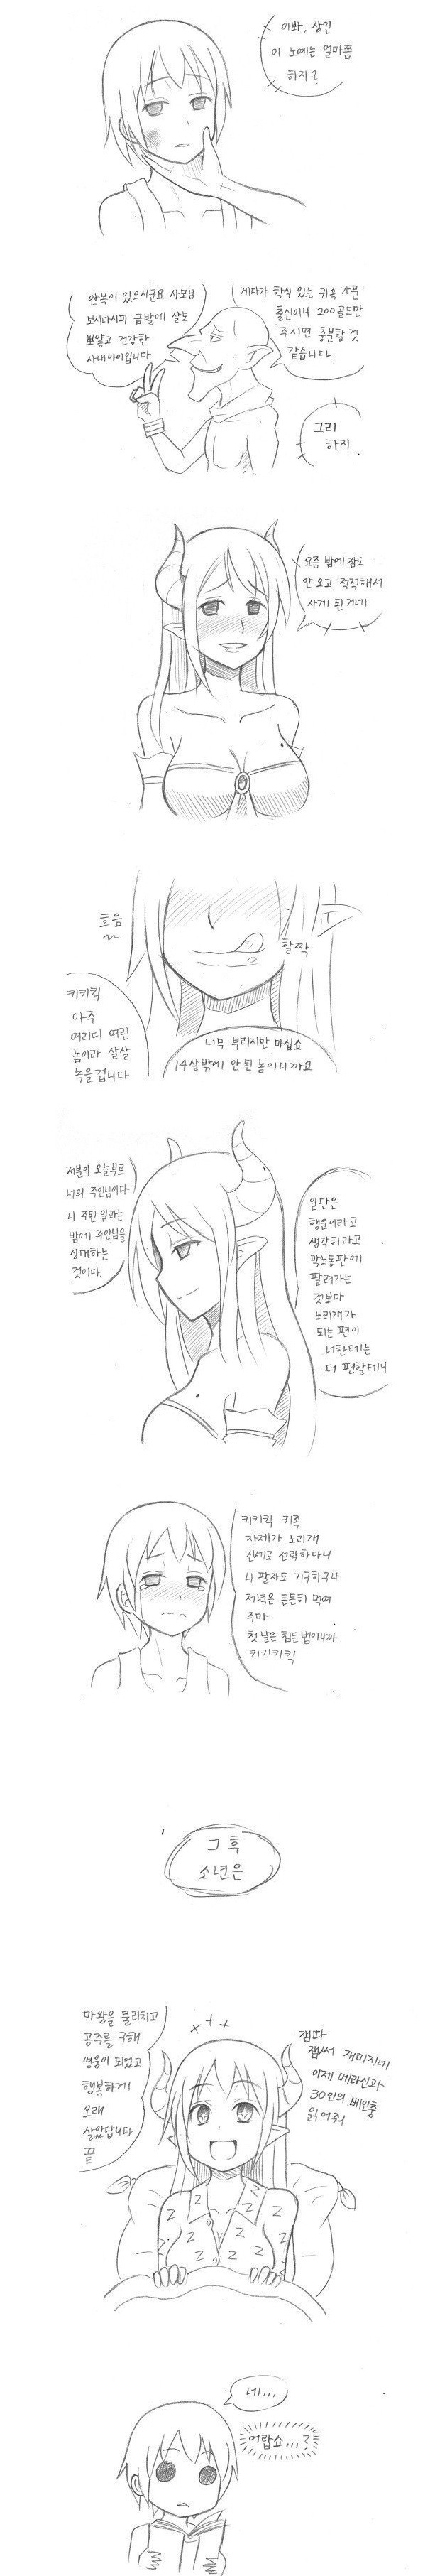 이봐, 상인
이 노예는 얼마쯤
하지?
안목이 있으시군요 사모님
보시다시피 금발에 살도
뽀얗고 건강한
사내아이입니다
게다가 학식 있는 귀족 가문
출신이니 200골드만
주시면 충분할 것
같습니다.
그리
하지
요즘 밤에 잠도
안 오고 적적해서
사게 된 거네
흐음
~
할짝
키키킥
아주
여리디 여린
놈이라 살살
녹을겁니다
너무 부리지만 마십쇼
14살밖에 안된 놈이니까요
저분이 오늘부로
너의 주인님이다
니 주된 일과는
밤에 주인님을
상대하는
것이다.
일단은
행운이라고
생각하라고
막노동판에
팔려가는
것보다
노리개가
되는 편이
너한테는
더 편할테니
키키킥 귀족
자제가 노리개
신세로 전락하다니
니 팔자도 기구하구나
저녁은 든든히 먹여
주마
첫 날은 힘든 법이니까
키키키킥
그 후
소년은
마왕을 물리치고
공주를 구해
영웅이 되었고
행복하게
오래
살았답니다
끝
잼따
잼써 재미지네
이제 메라신과
30인의 베인충
읽어줘
네...
어랍쇼...?